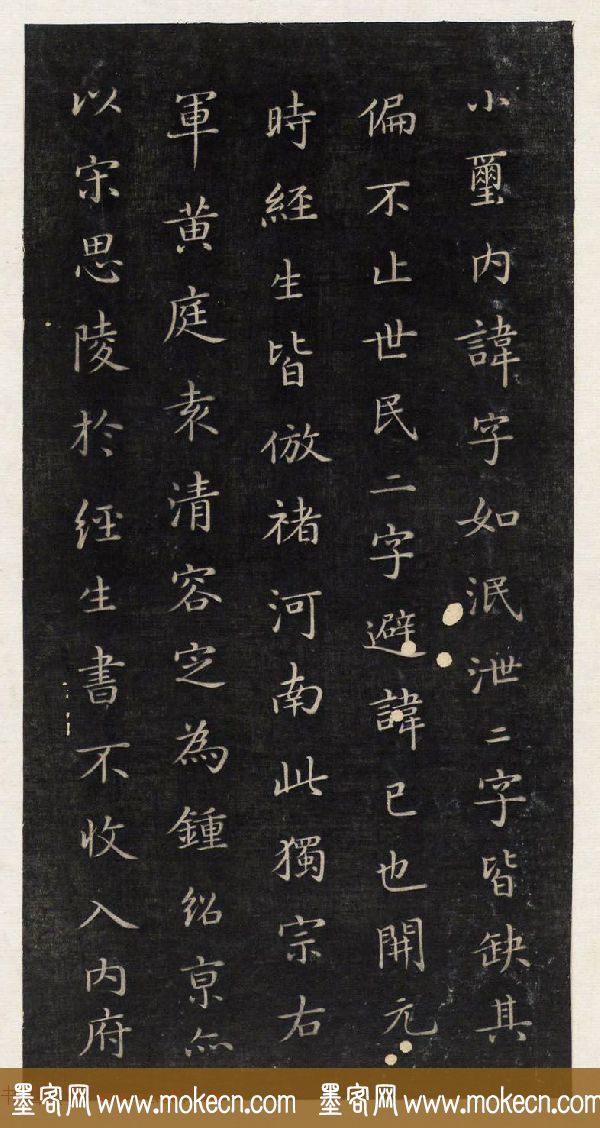 小璽内諱字如泯泄二字皆缺其
偏不止世民二字避諱已也開元
時経生皆倣褚河南此獨宗右
軍黄庭袁清容定為鍾紹京亦
以宋思陵於経生書不收入内府
墨客网 www.mokecn.com 墨客网 www.mokecn.com